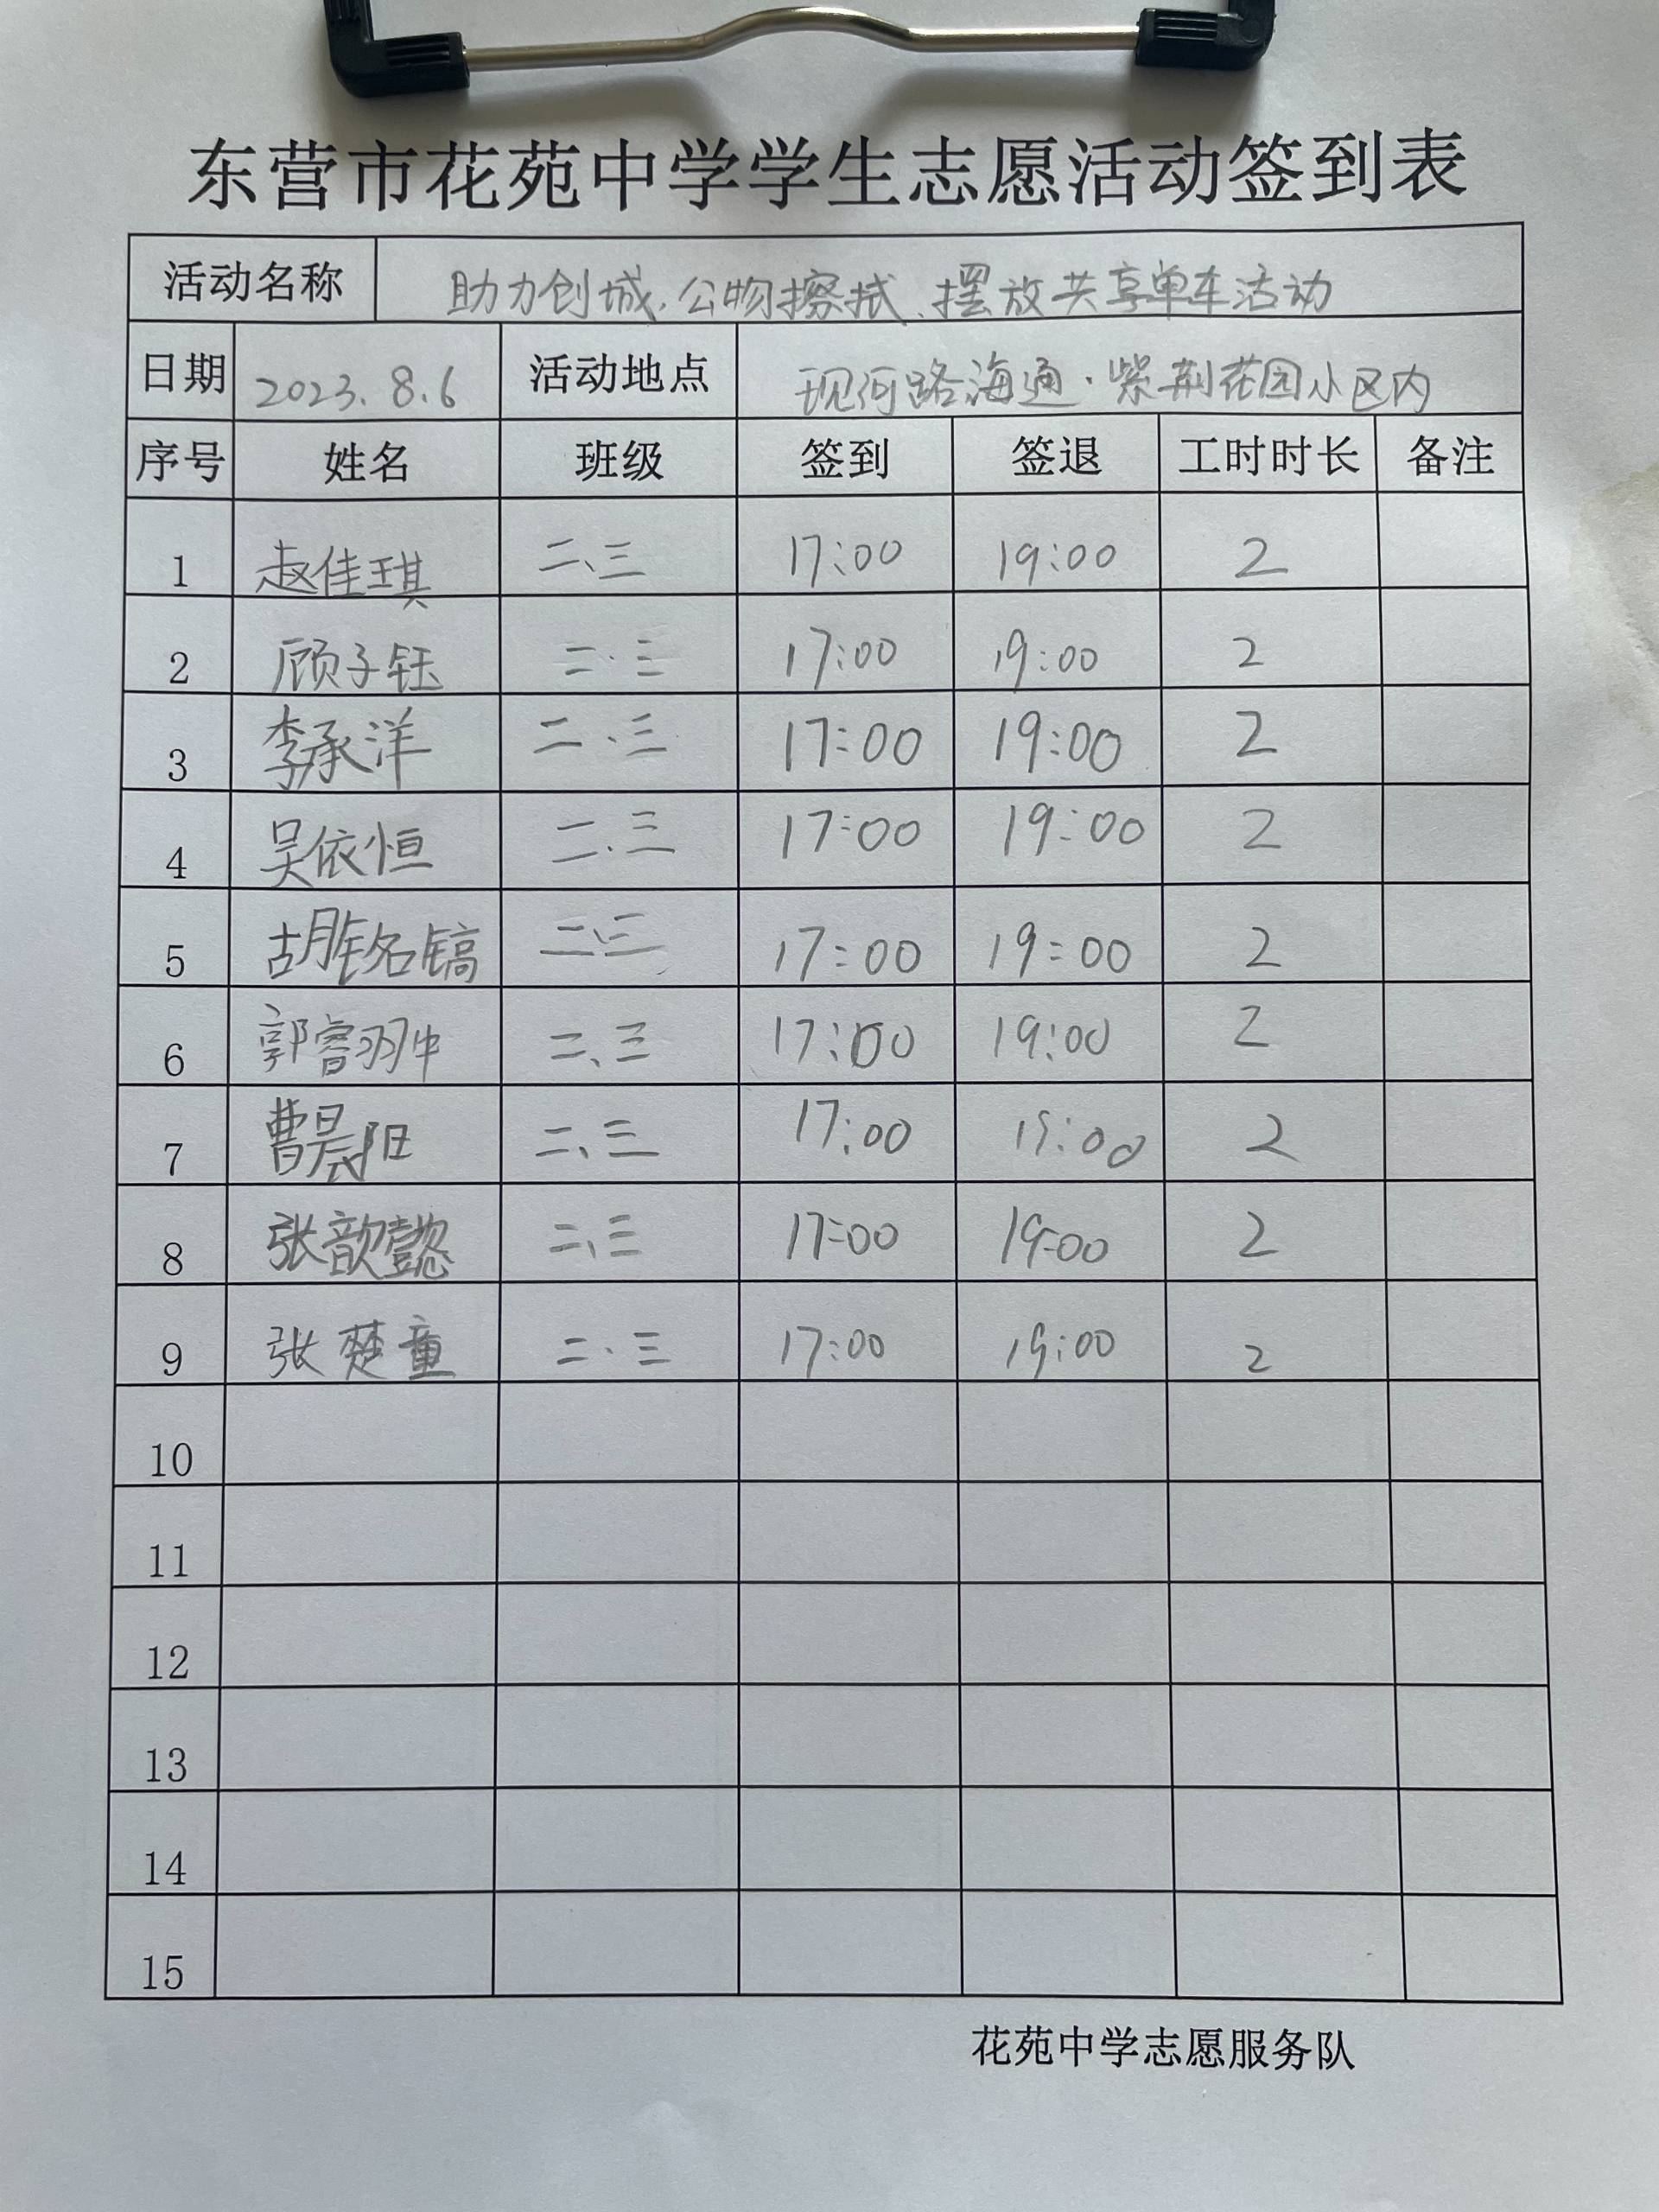 东营市花苑中学学生志愿活动签到表
活动名称 助力创城、公物擦拭、摆放共享单车活动
日期 2023.8.6 活动地点 现河路海通·紫荆花园小区内
序号 姓名 班级 签到 签退 工时时长 备注
1 赵佳琪 二、三 17:00 19:00 2
2 顾子钰 二·三 17:00 19:00 2
3 李承洋 二、三 17:00 19:00 2
4 吴依恒 二、三 17:00 19:00 2
5 胡铭镐 二、三 17:00 19:00 2
6 郭睿翀 二、三 17:00 19:00 2
7 曹晨阳 二、三 17:00 19:00 2
8 张歆懿 二、三 17:00 19:00 2
9 张楚童 二·三 17:00 19:00 2
10
11
12
13
14
15
花苑中学志愿服务队